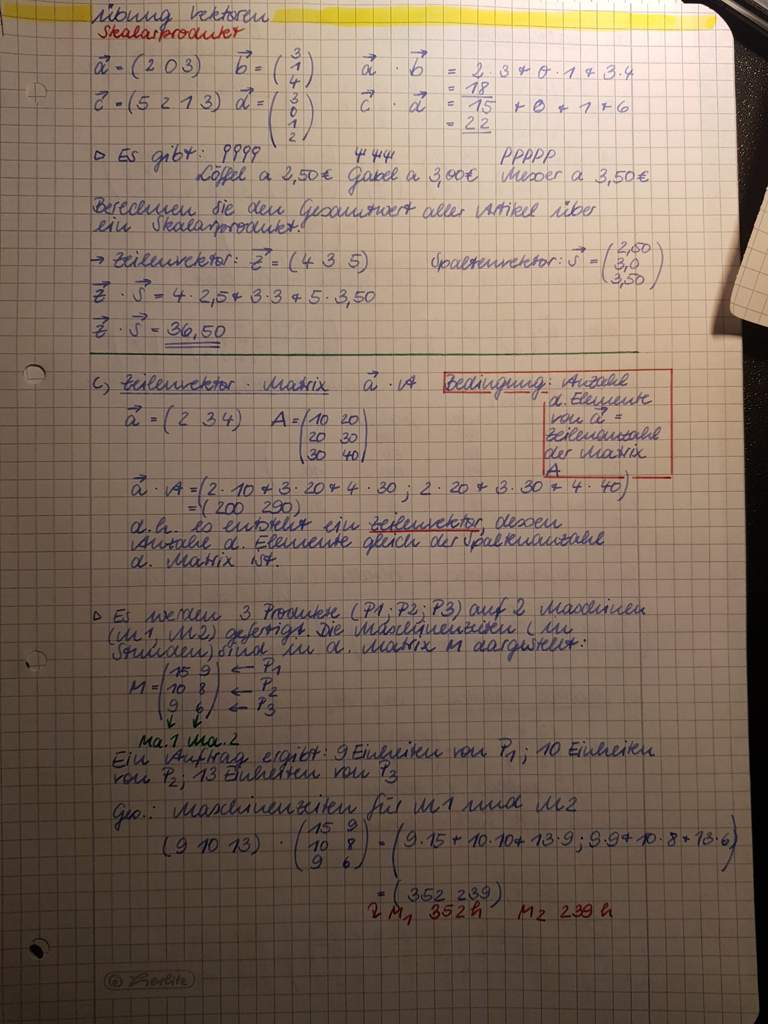 Übung Vektoren
Skalarprodukt
a⃗ = (2 0 3) b⃗ = (3 1 4) a⃗ · b⃗ = 2·3 + 0·1 + 3·4
= 18
c⃗ = (5 2 1 3) d⃗ = (3 0 1 2) c⃗ · d⃗ = 15 + 0 + 1 + 6
= 22
▹ Es gibt: 9999 444 PPPPP
Löffel a 2,50€ Gabel a 3,00€ Messer a 3,50€
Berechnen Sie den Gesamtwert aller Artikel über
ein Skalarprodukt.
→ Zeilenvektor: z⃗ = (4 3 5) Spaltenvektor: s⃗ = (2,50 3,0 3,50)
z⃗ · s⃗ = 4·2,5 + 3·3 + 5·3,50
z⃗ · s⃗ = 36,50
c) Zeilenvektor · Matrix a⃗ · A
Bedingung: Anzahl
d. Elemente
von a⃗ =
Zeilenanzahl
der Matrix
A
a⃗ = (2 3 4) A = (10 20
20 30
30 40)
a⃗ · A = (2·10 + 3·20 + 4·30 ; 2·20 + 3·30 + 4·40)
= (200 290)
d.h. es entsteht ein Zeilenvektor, dessen
Anzahl d. Elemente gleich der Spaltenanzahl
d. Matrix ist.
▹ Es werden 3 Produkte (P1; P2; P3) auf 2 Maschinen
(M1, M2) gefertigt. Die Maschinenzeiten (in
Stunden) sind in d. Matrix M dargestellt:
M = (15 9 ← P1
10 8 ← P2
9 6) ← P3
Ma.1 Ma.2
Ein Auftrag ergibt: 9 Einheiten von P1; 10 Einheiten
von P2; 13 Einheiten von P3
Ges.: Maschinenzeiten für M1 und M2
(9 10 13) · (15 9
10 8
9 6) = (9·15 + 10·10 + 13·9 ; 9·9 + 10·8 + 13·6)
= (352 239)
M1 352h M2 239h